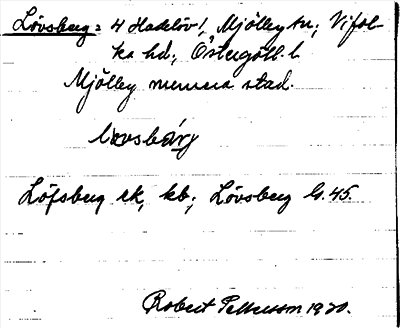 Lövsberg: 4 Hadelöv!, Mjölby kn, Vifol-
ka hd, Östergötl. l
Mjölby numera stad.
Löfsberg ek, kb; Lövsberg G. 45.
Robert Pettersson 1920.